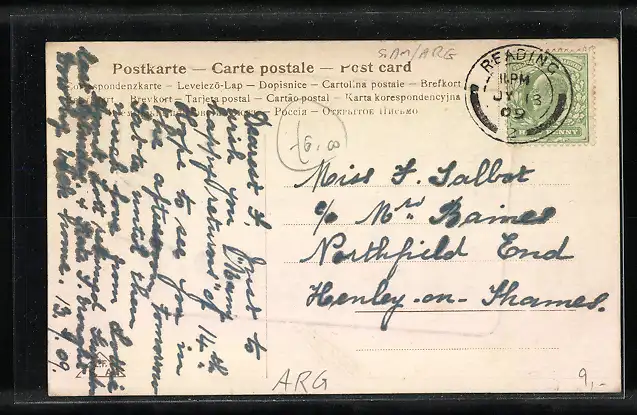 S.AM/ARG
Postkarte — Carte postale — Post card
Correspondenzkarte — Levelező-Lap — Dopisnice — Cartolina postale — Brefkort
Brevkort — Tarjeta postal — Cartão postal — Karta korespondencyjna
Россія — Открытое Письмо
READING
11 PM
JY 13
09
HALFPENNY
16,00
Miss F. Talbot
c/o Mrs Baines
Northfield End
Henley-on-Thames.
Dearest F. Just to
wish you "Many
happy returns" of 14th
Hope to see you in
the afternoon tomorrow
until then
much love from
time. 13/7/09.
ARG
9,-